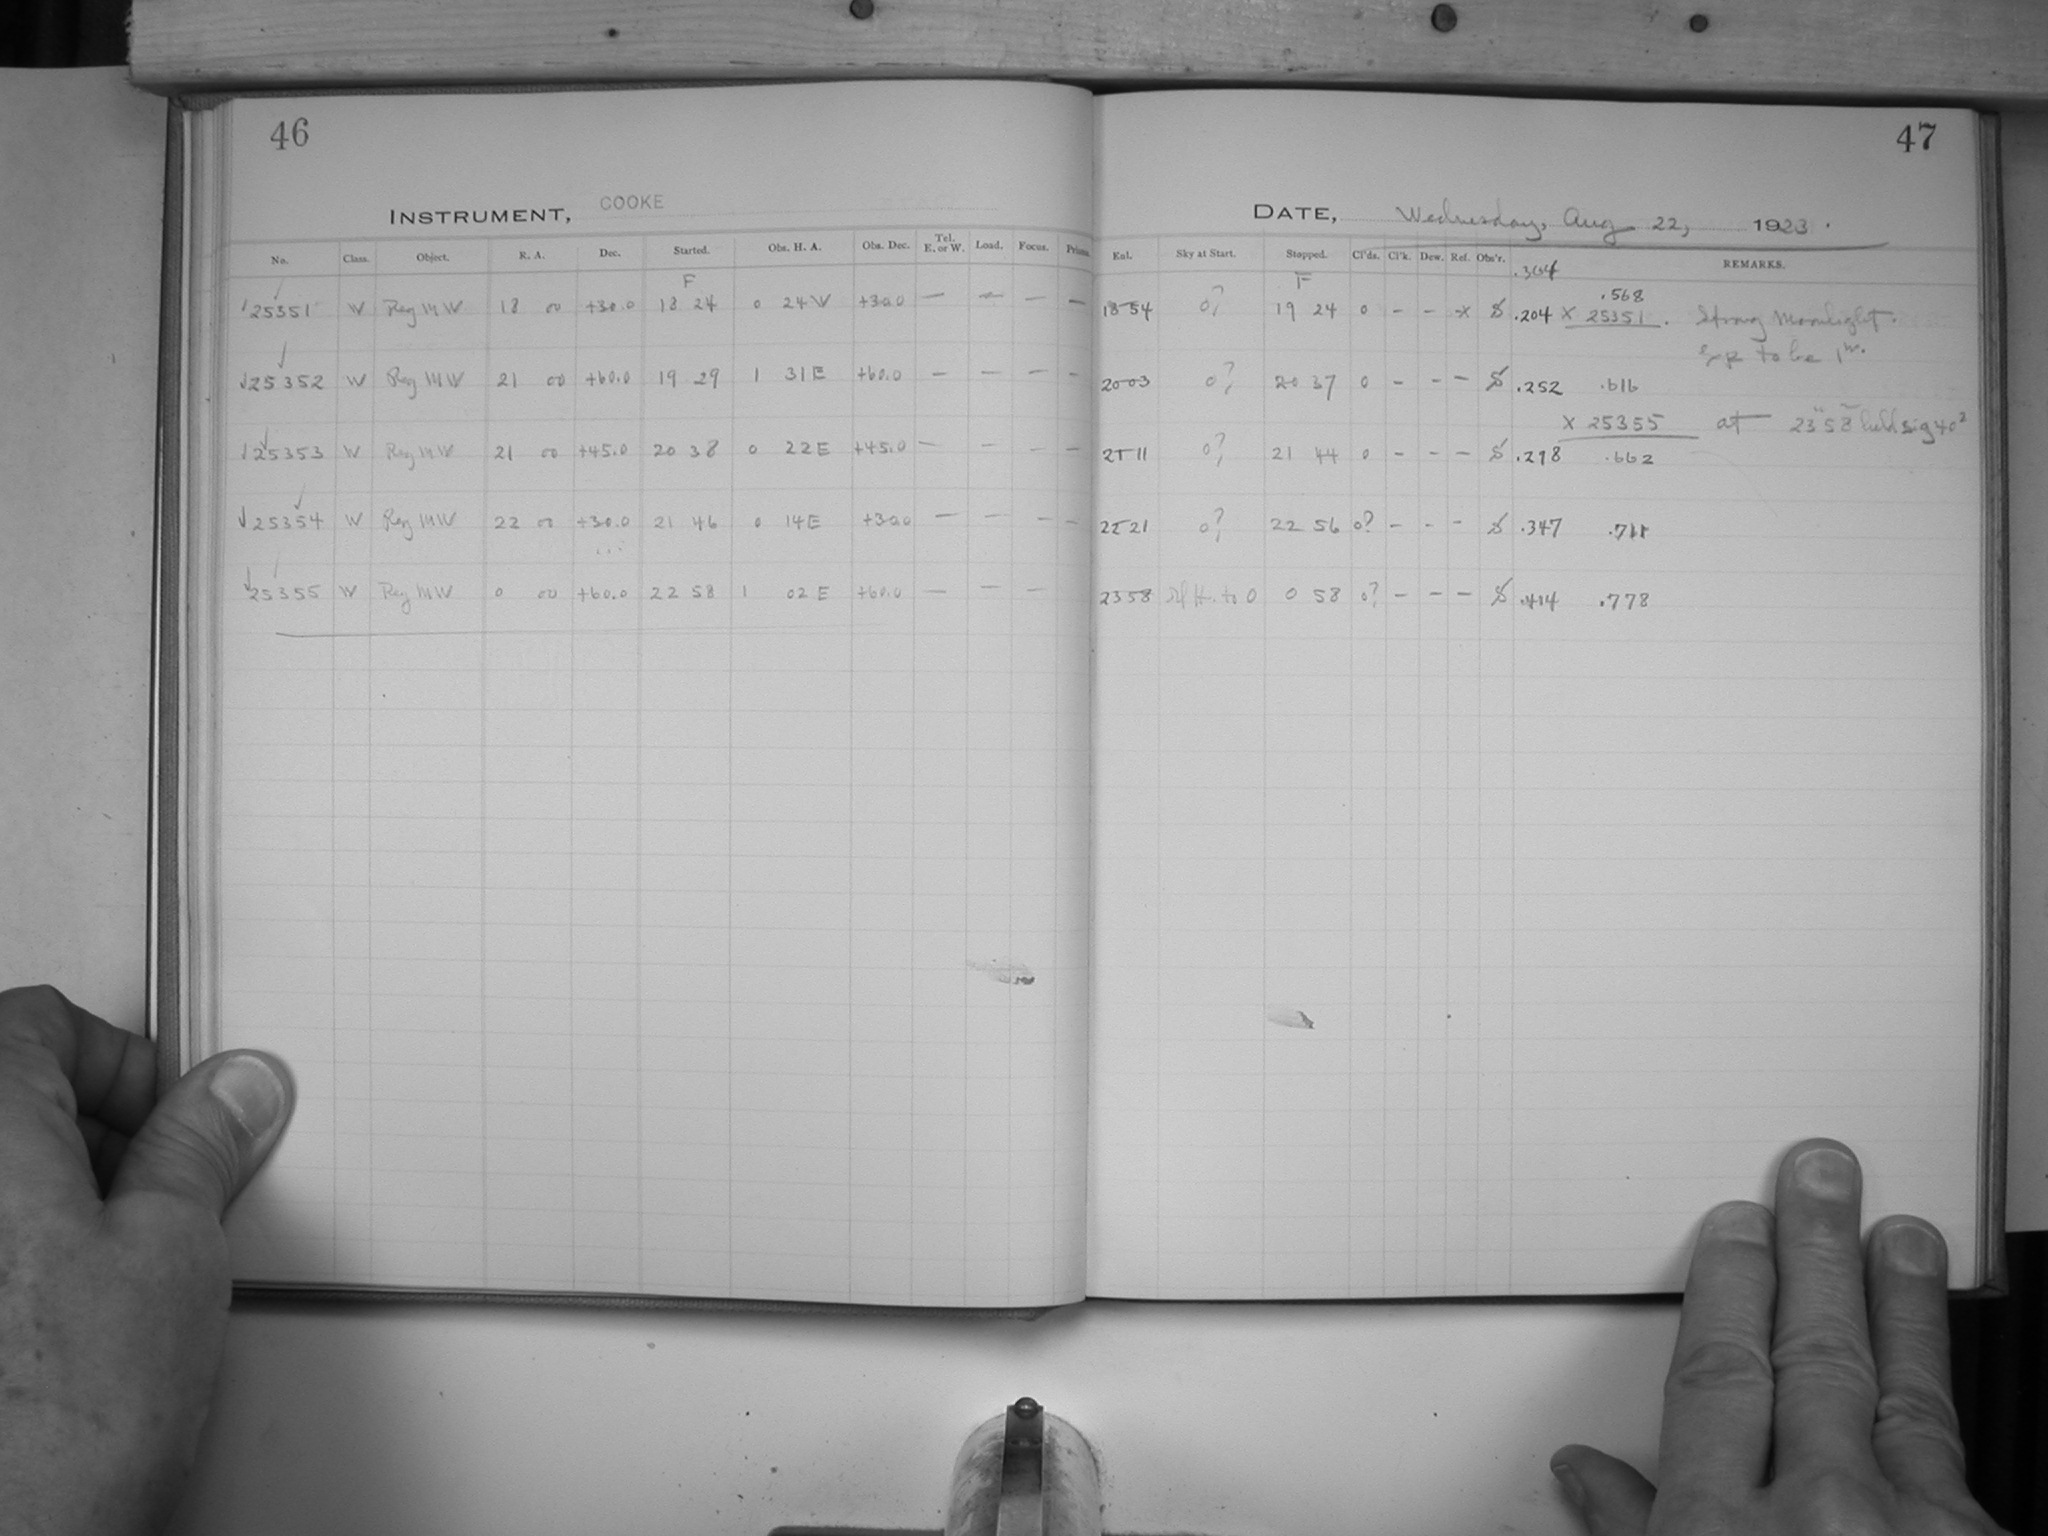 46
INSTRUMENT, COOKE
No. Class. Object. R. A. Dec. Started. Obs. H. A. Obs. Dec. Tel. E. or W. Load. Focus. Prism.
F
25351 W Reg MW 18 00 +30.0 18 24 0 24 W +30.0 — — — —
25352 W Reg MW 21 00 +60.0 19 29 1 31 E +60.0 — — — —
25353 W Reg MW 21 00 +45.0 20 38 0 22 E +45.0 — — — —
25354 W Reg MW 22 00 +30.0 21 46 0 14 E +30.0 — — — —
25355 W Reg MW 0 00 +60.0 22 58 1 02 E +60.0 — — —
47
DATE, Wednesday, Aug 22, 1923.
Enl. Sky at Start. Stopped. Cl'ds. Cl'k. Dew. Ref. Obs'r. REMARKS.
F .304
.568
18 54 0? 19 24 0 - - -x S .204 X 25351. Strong Moonlight.
Exp to be 1 hr.
20 03 0? 20 37 0 - - - S .252 .616
X 25355 at 23h 58m
21 11 0? 21 44 0 - - - S .298 .662
22 21 0? 22 56 0? - - - S .347 .711
23 58 to 0 0 58 0? - - - S .414 .778